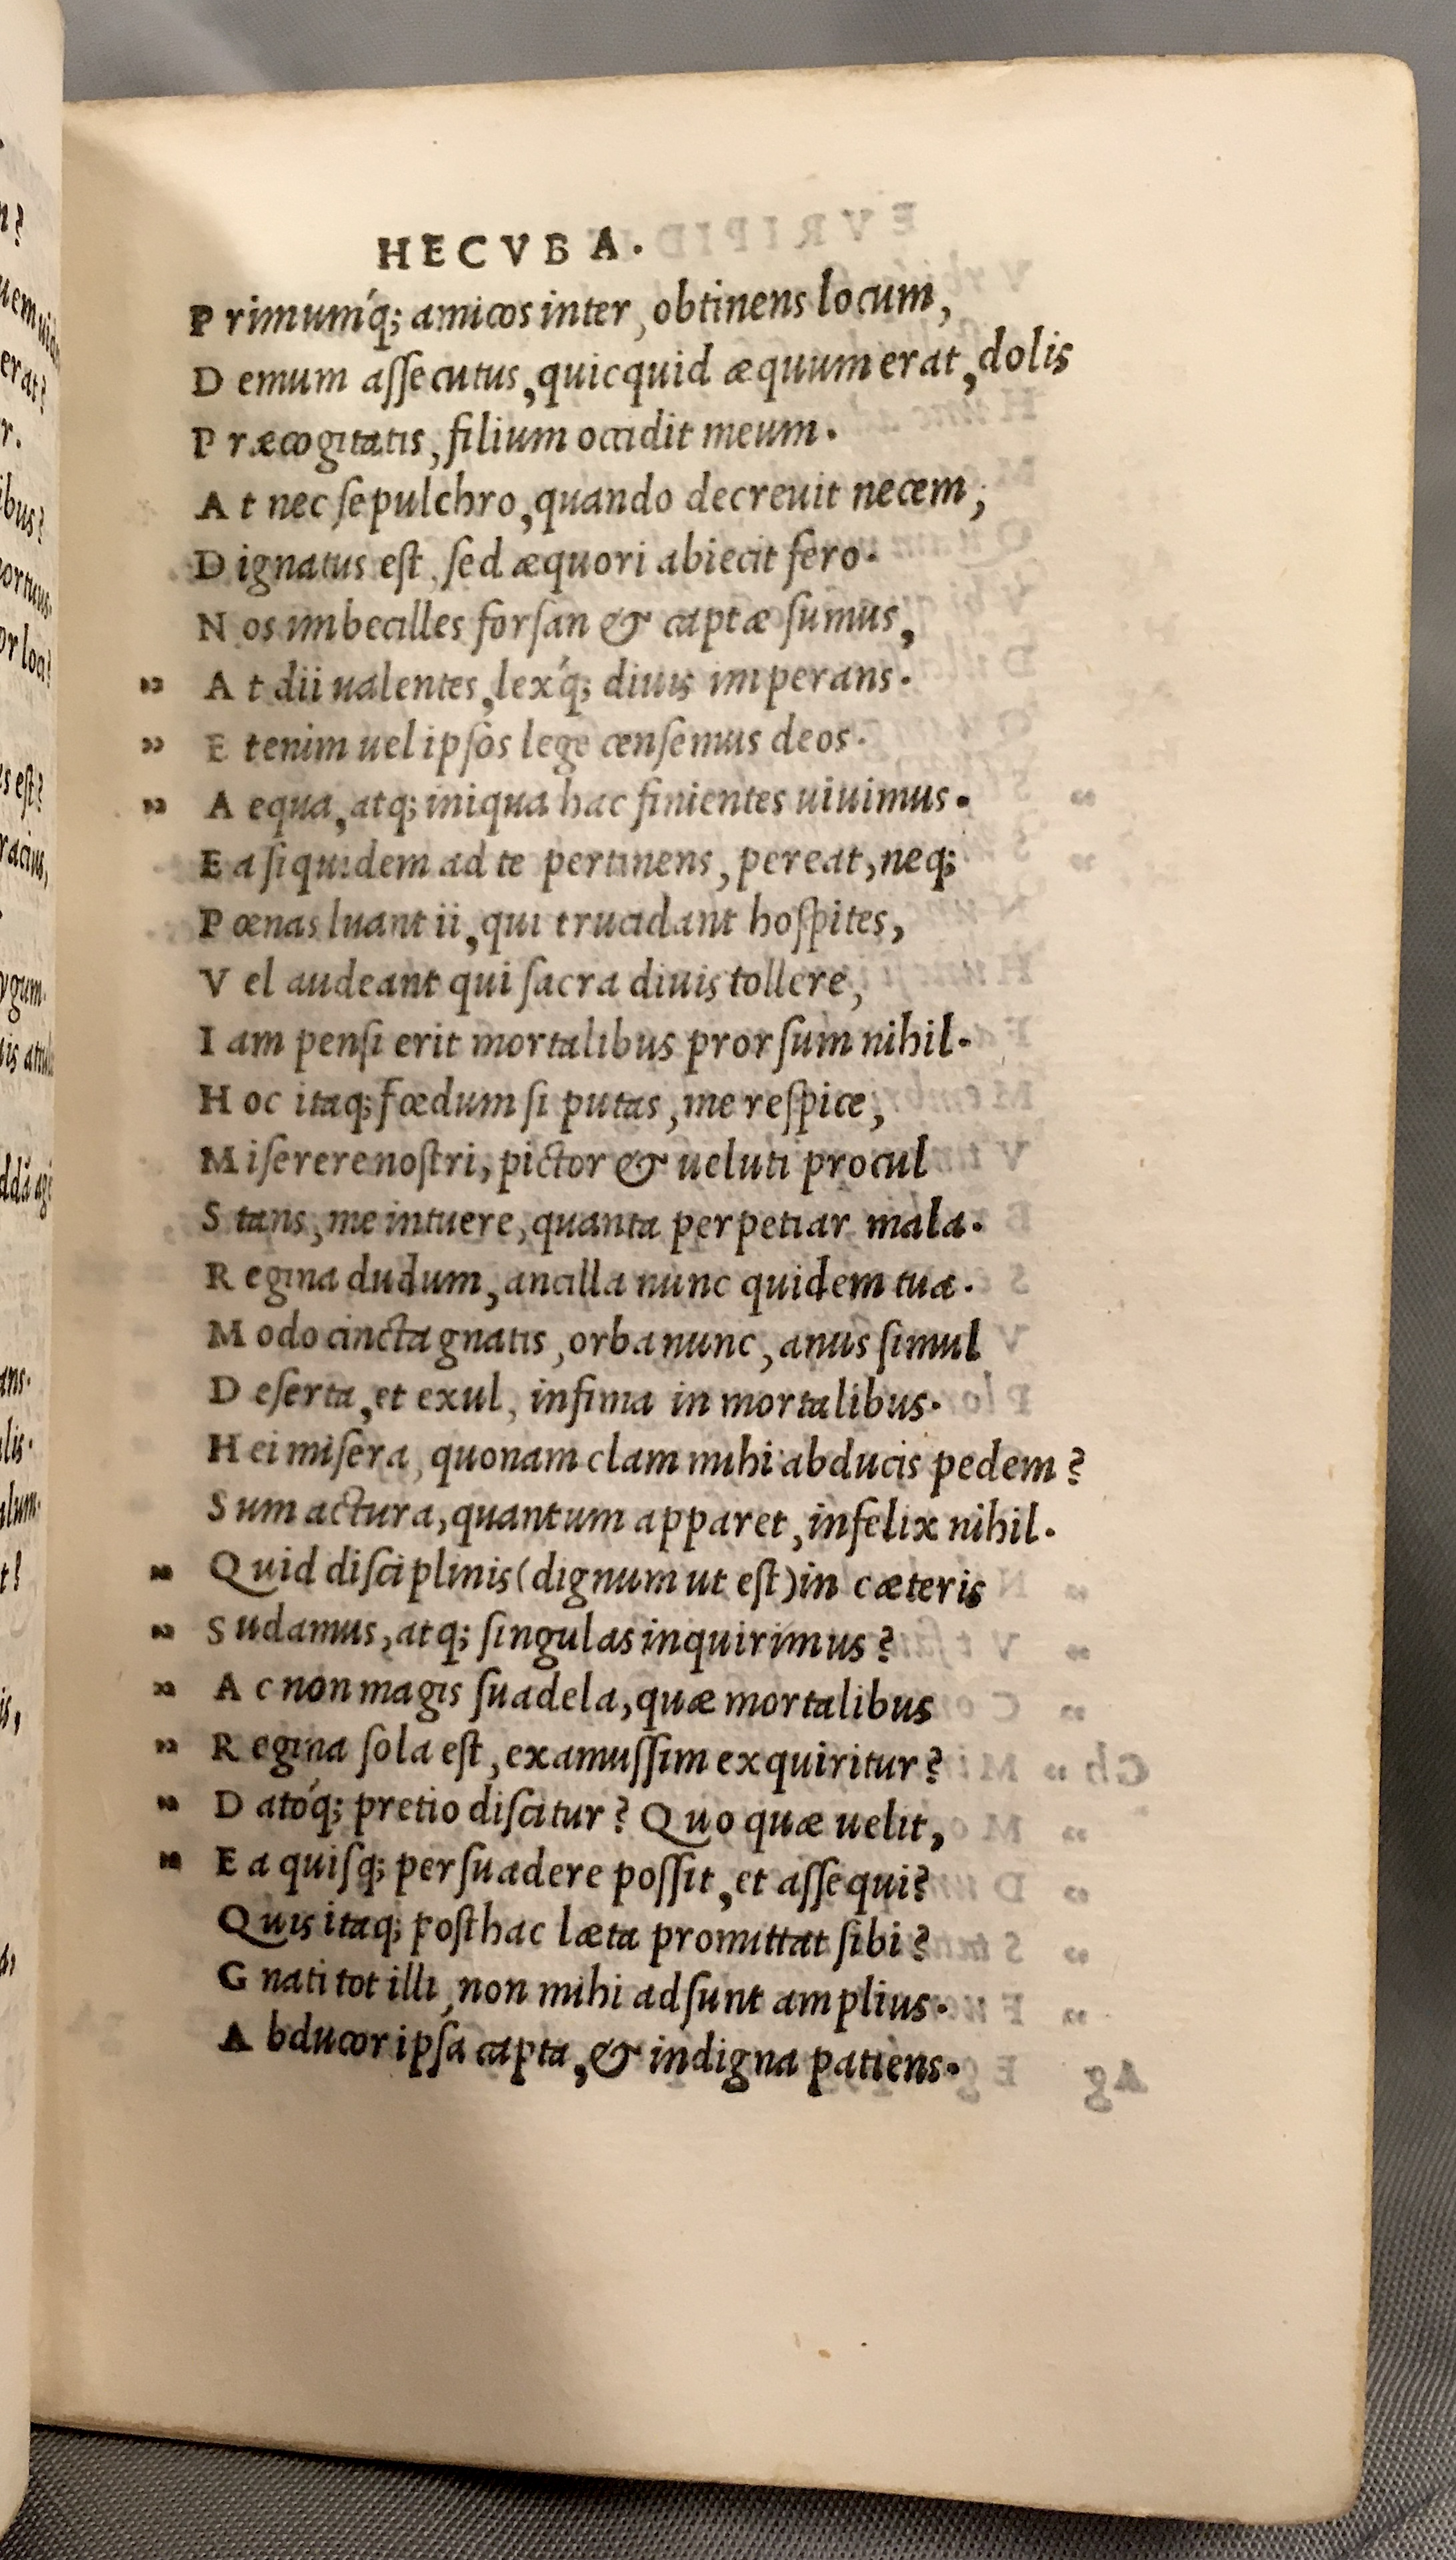 HECVBA.
P rimum'q; amicos inter, obtinens locum,
D emum aſſecutus, quicquid æquum erat, dolis
P ræcogitatis, filium occidit meum.
A t nec ſepulchro, quando decreuit necem,
D ignatus eſt, ſed æquori abiecit fero.
N os imbecilles forſan & captæ ſumus,
" A t dii ualentes, lex'q; diuis imperans.
" E tenim uel ipſos lege cenſemus deos.
" A equa, atq; iniqua hac finientes uiuimus.
E a ſiquidem ad te pertinens, pereat, neq;
P œnas luant ii, qui trucidant hoſpites,
V el audeant qui ſacra diuis tollere,
I am penſi erit mortalibus prorſum nihil.
H oc itaq; fœdum ſi putas, me reſpice,
M iſerere noſtri, pictor & ueluti procul
S tans, me intuere, quanta perpetiar mala.
R egina dudum, ancilla nunc quidem tua.
M odo cincta gnatis, orba nunc, anus ſimul
D eſerta, et exul, infima in mortalibus.
H ei miſera, quonam clam mihi abducis pedem?
S um actura, quantum apparet, infelix nihil.
" Q uid diſciplinis (dignum ut eſt) in cæteris
" S udamus, atq; ſingulas inquirimus?
" A c non magis ſuadela, quæ mortalibus
" R egina ſola eſt, examuſſim exquiritur?
" D ato'q; pretio diſcitur? Quo quæ uelit,
" E a quiſq; perſuadere poſſit, et aſſequi?
Q uis itaq; poſthac læta promittat ſibi?
G nati tot illi, non mihi adſunt amplius.
A bducor ipſa capta, & indigna patiens.